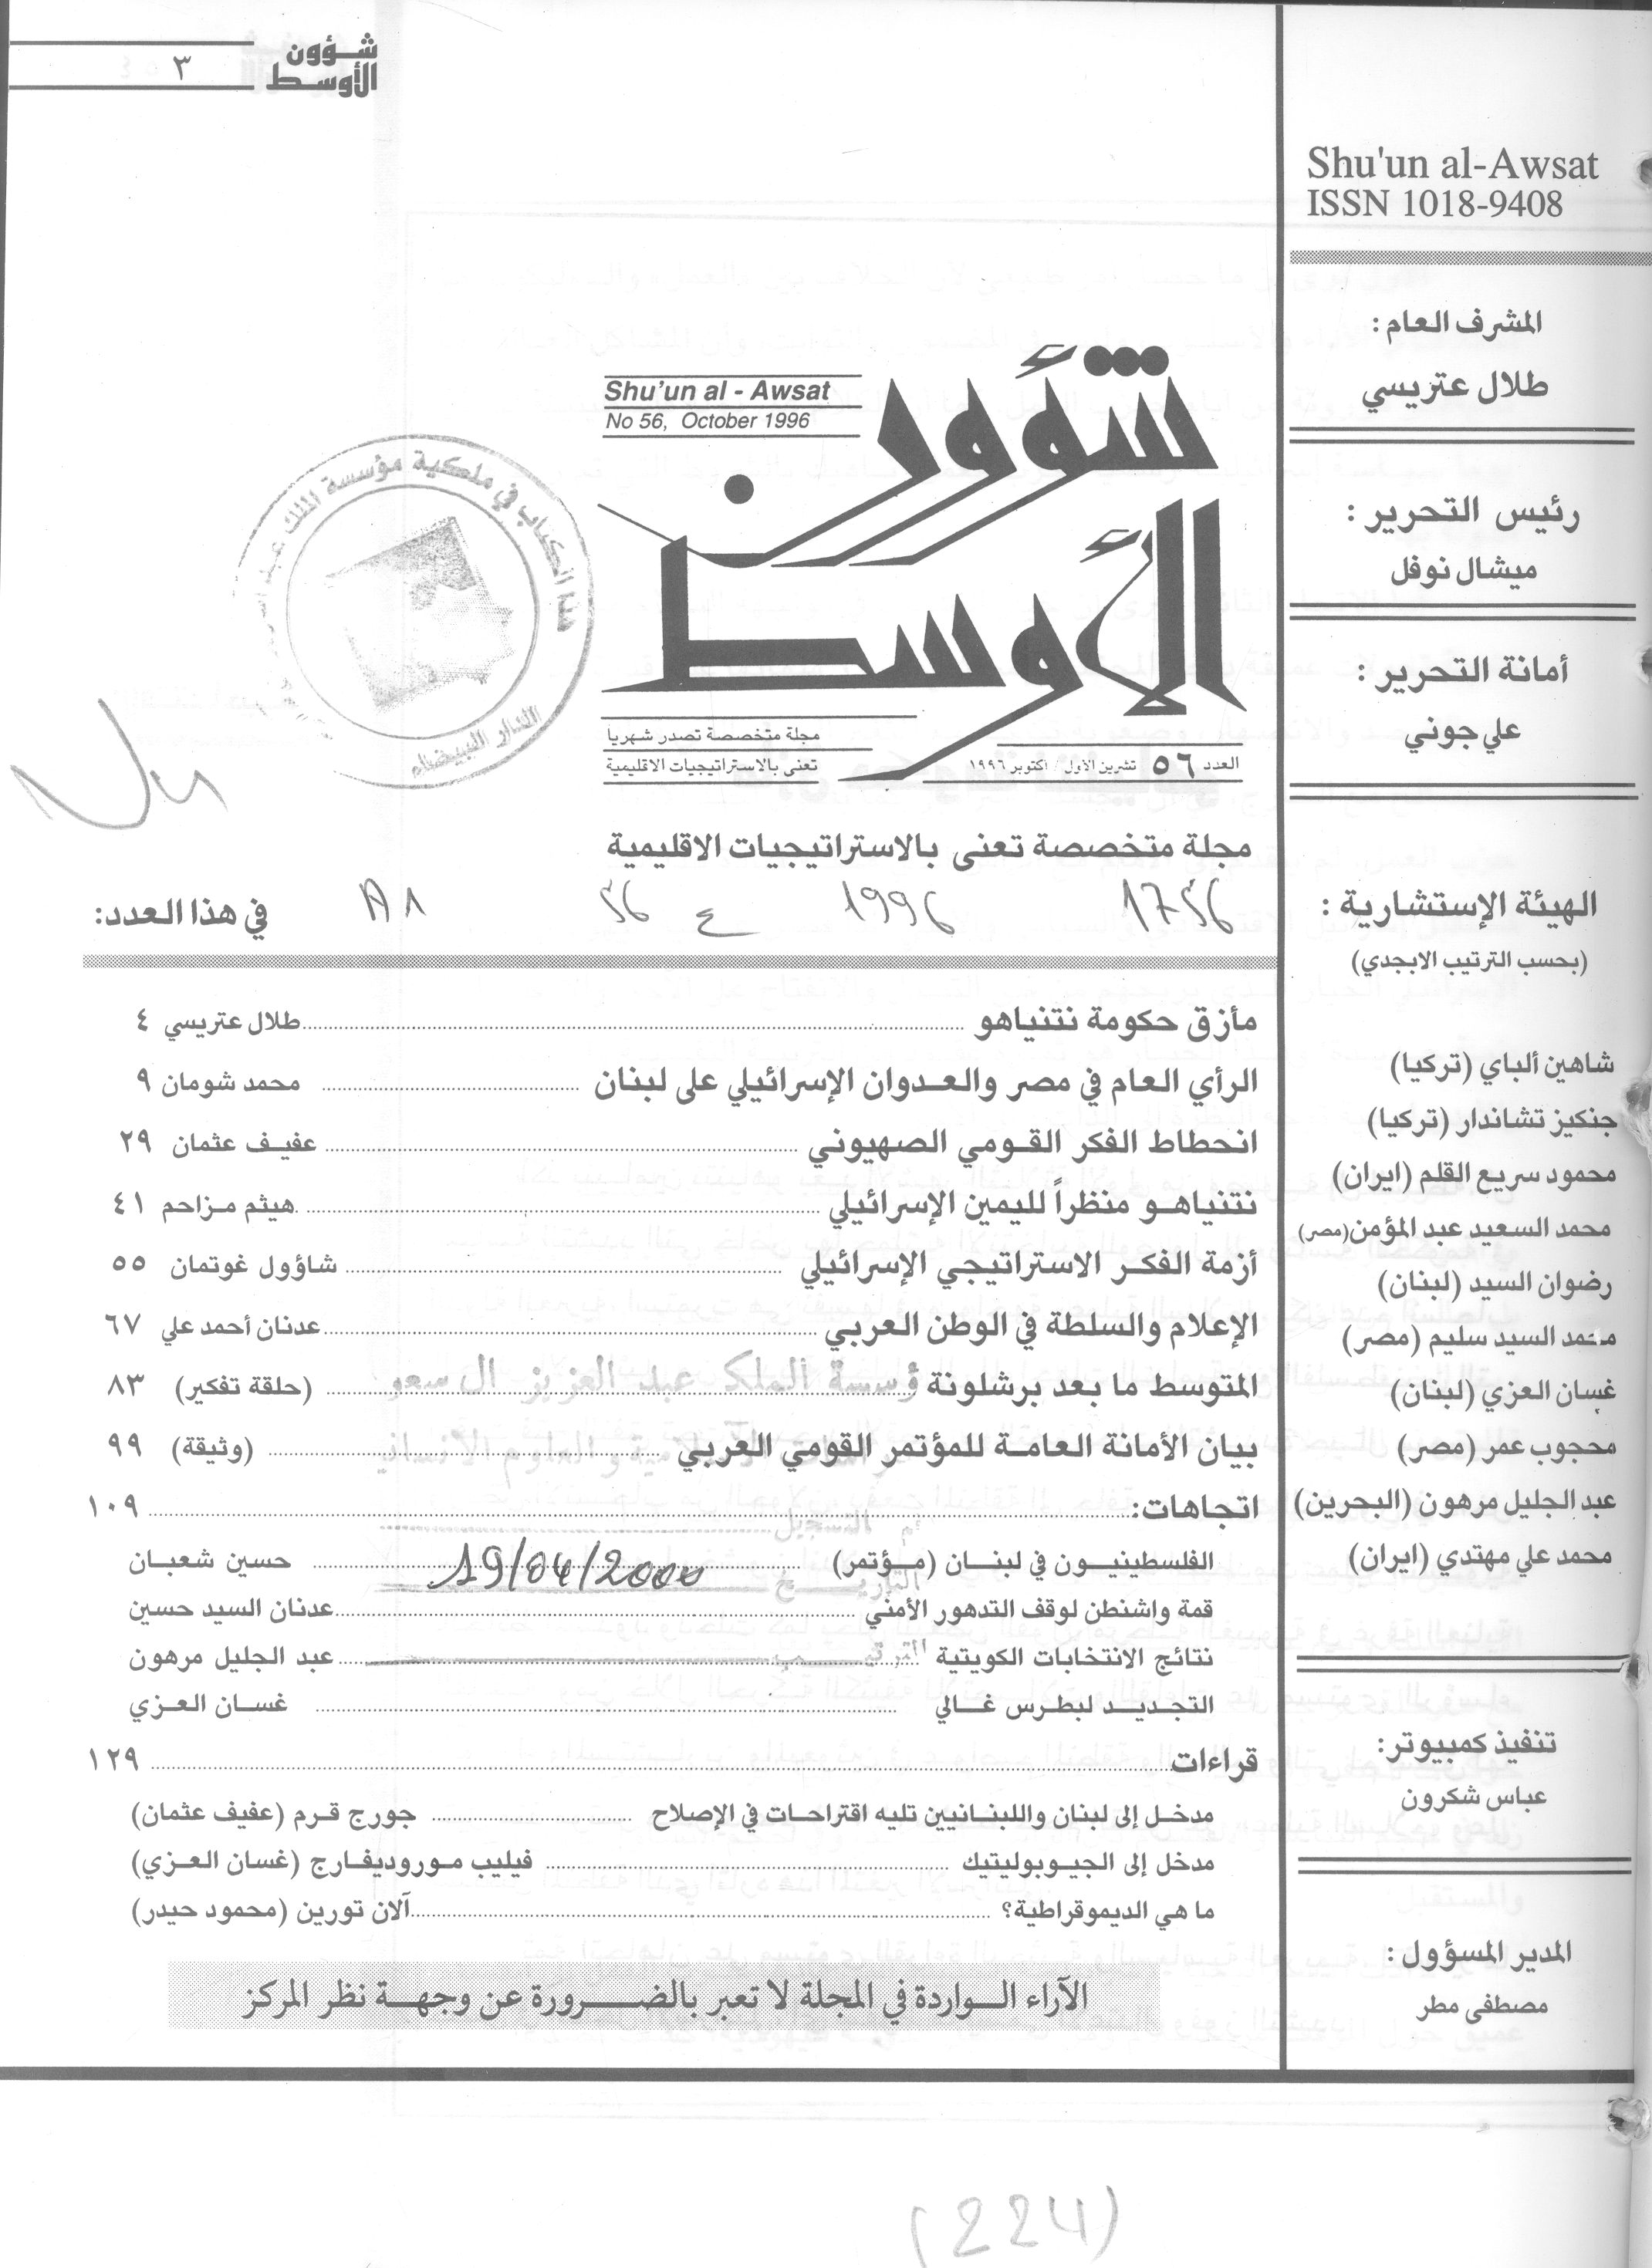 شؤون
الأوسط
٣
Shu'un al-Awsat
ISSN 1018-9408
المشرف العام :
طلال عتريسي
رئيس التحرير :
ميشال نوفل
أمانة التحرير :
علي جوني
الهيئة الإستشارية :
(بحسب الترتيب الابجدي)
شاهين ألباي (تركيا)
جنكيز تشاندار (تركيا)
محمود سريع القلم (ايران)
محمد السعيد عبد المؤمن (مصر)
رضوان السيد (لبنان)
محمد السيد سليم (مصر)
غسان العزي (لبنان)
محجوب عمر (مصر)
عبد الجليل مرهون (البحرين)
محمد علي مهتدي (ايران)
تنفيذ كمبيوتر:
عباس شكرون
المدير المسؤول :
مصطفى مطر
Shu'un al - Awsat
No 56, October 1996
شؤون
الأوسط
مجلة متخصصة تصدر شهريا
تعنى بالاستراتيجيات الاقليمية
العدد ٥٦ تشرين الأول / أكتوبر ١٩٩٦
الكتاب في ملكية مؤسسة الملك عبد
الدار البيضاء
مجلة متخصصة تعنى بالاستراتيجيات الاقليمية
1756 1996 ع 56
في هذا العدد:
مأزق حكومة نتنياهو ........ طلال عتريسي ٤
الرأي العام في مصر والعدوان الإسرائيلي على لبنان ........ محمد شومان ٩
انحطاط الفكر القومي الصهيوني ........ عفيف عثمان ٢٩
نتنياهو منظراً لليمين الإسرائيلي ........ هيثم مزاحم ٤١
أزمة الفكر الاستراتيجي الإسرائيلي ........ شاؤول غوتمان ٥٥
الإعلام والسلطة في الوطن العربي ........ عدنان أحمد علي ٦٧
المتوسط ما بعد برشلونة ........ (حلقة تفكير) ٨٣
ؤسسة الملك عبد العزيز ال سعو
بيان الأمانة العامة للمؤتمر القومي العربي ........ (وثيقة) ٩٩
والعلوم الانساني
اتجاهات: ........ ١٠٩
التسجيل
الفلسطينيون في لبنان (مؤتمر) ........ حسين شعبان
التاريخ 19/04/2000
قمة واشنطن لوقف التدهور الأمني ........ عدنان السيد حسين
نتائج الانتخابات الكويتية ........ عبد الجليل مرهون
التجديد لبطرس غالي ........ غسان العزي
قراءات ........ ١٢٩
مدخل إلى لبنان واللبنانيين تليه اقتراحات في الإصلاح ........ جورج قرم (عفيف عثمان)
مدخل إلى الجيوبوليتيك ........ فيليب موروديفارج (غسان العزي)
ما هي الديموقراطية؟ ........ آلان تورين (محمود حيدر)
الآراء الواردة في المجلة لا تعبر بالضرورة عن وجهة نظر المركز
(224)